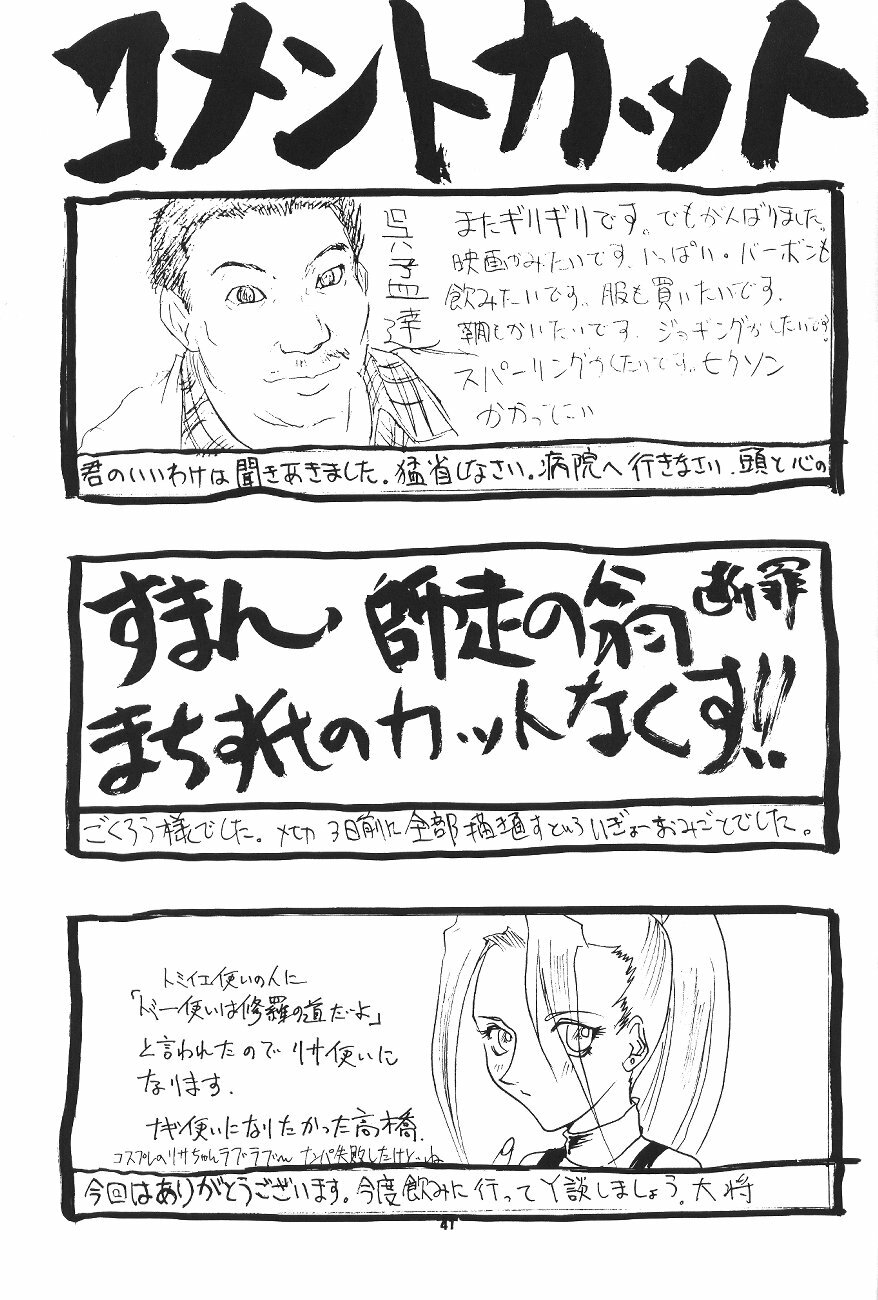 コメントカット
またギリギリです。でもがんばりました。
映画がみたいです。いっぱい。バーボンも
飲みたいです。服も買いたいです。
もかいたいです。ジョギングがしたいです。
スパーリングがしたいです。ヒクソン
かかってこい
君のいいわけは聞きあきました。猛省しなさい。病院へ行きなさい。頭と心の
すまん、師走の翁 断罪
まちずたのカットなくす!!
ごくろう様でした。 3日前に全部描き直すといういぎょーおみごとでした。
トミイエ使いの人に
「ドベー使いは修羅の道だよ」
と言われたのでリサ使いに
なります。
ナギ使いになりたかった高橋.
コスプレのリサちゃんラブラブ〜ん ナンパ失敗したけど…ね
今回はありがとうございます。今度飲みに行ってY談しましょう。大将
41